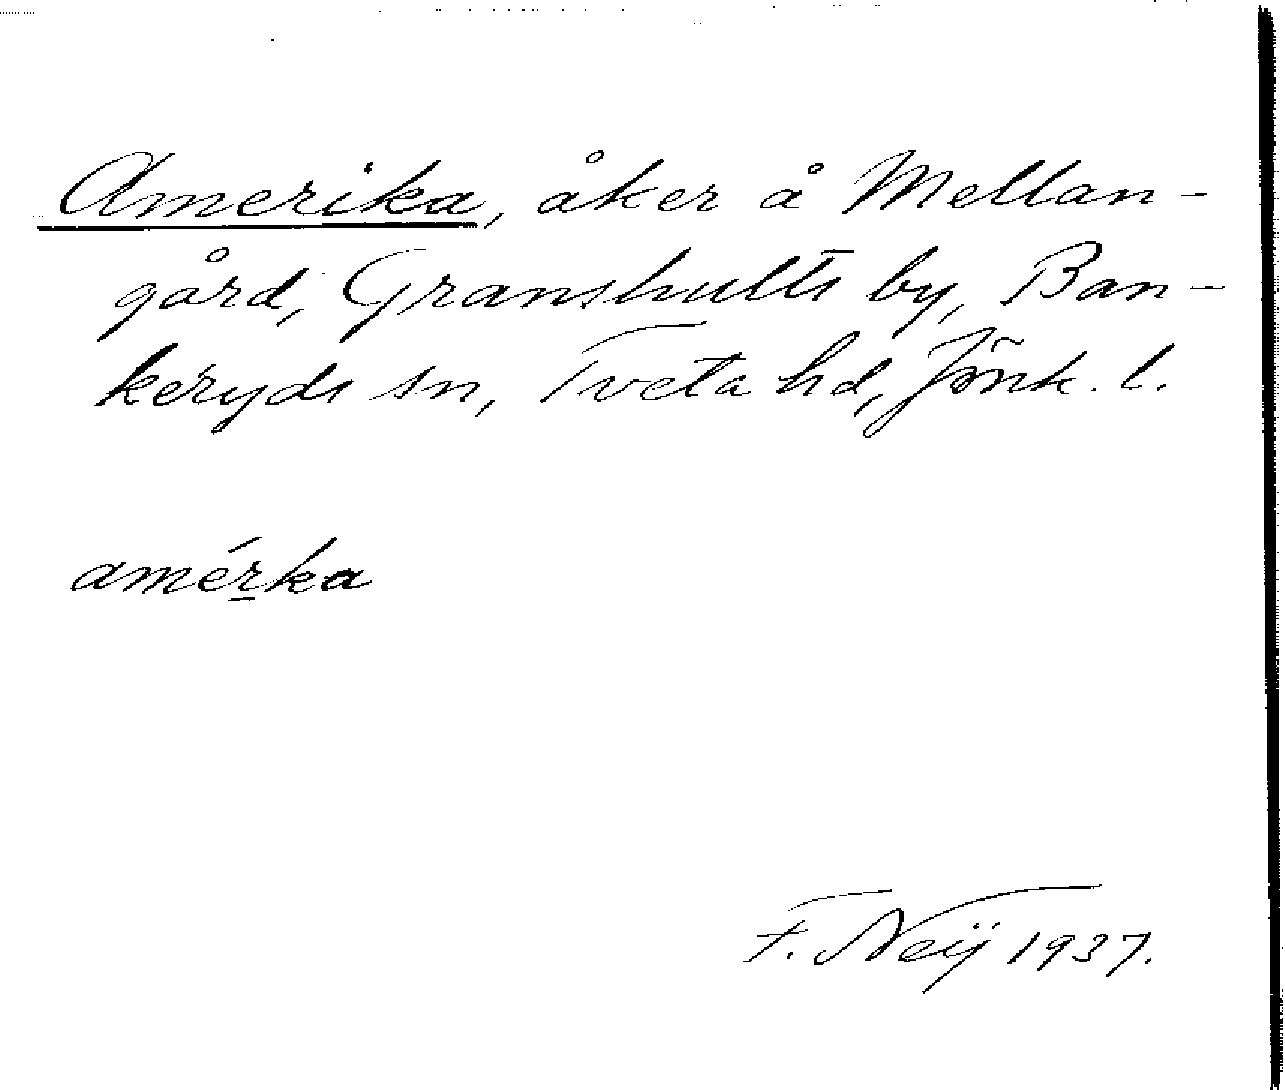 Amerika, åker å Mellan-
gård, Granshults by, Ban-
keryds sn, Tveta hd, Jönk. l.
amér̲ka
F. Neij 1937.